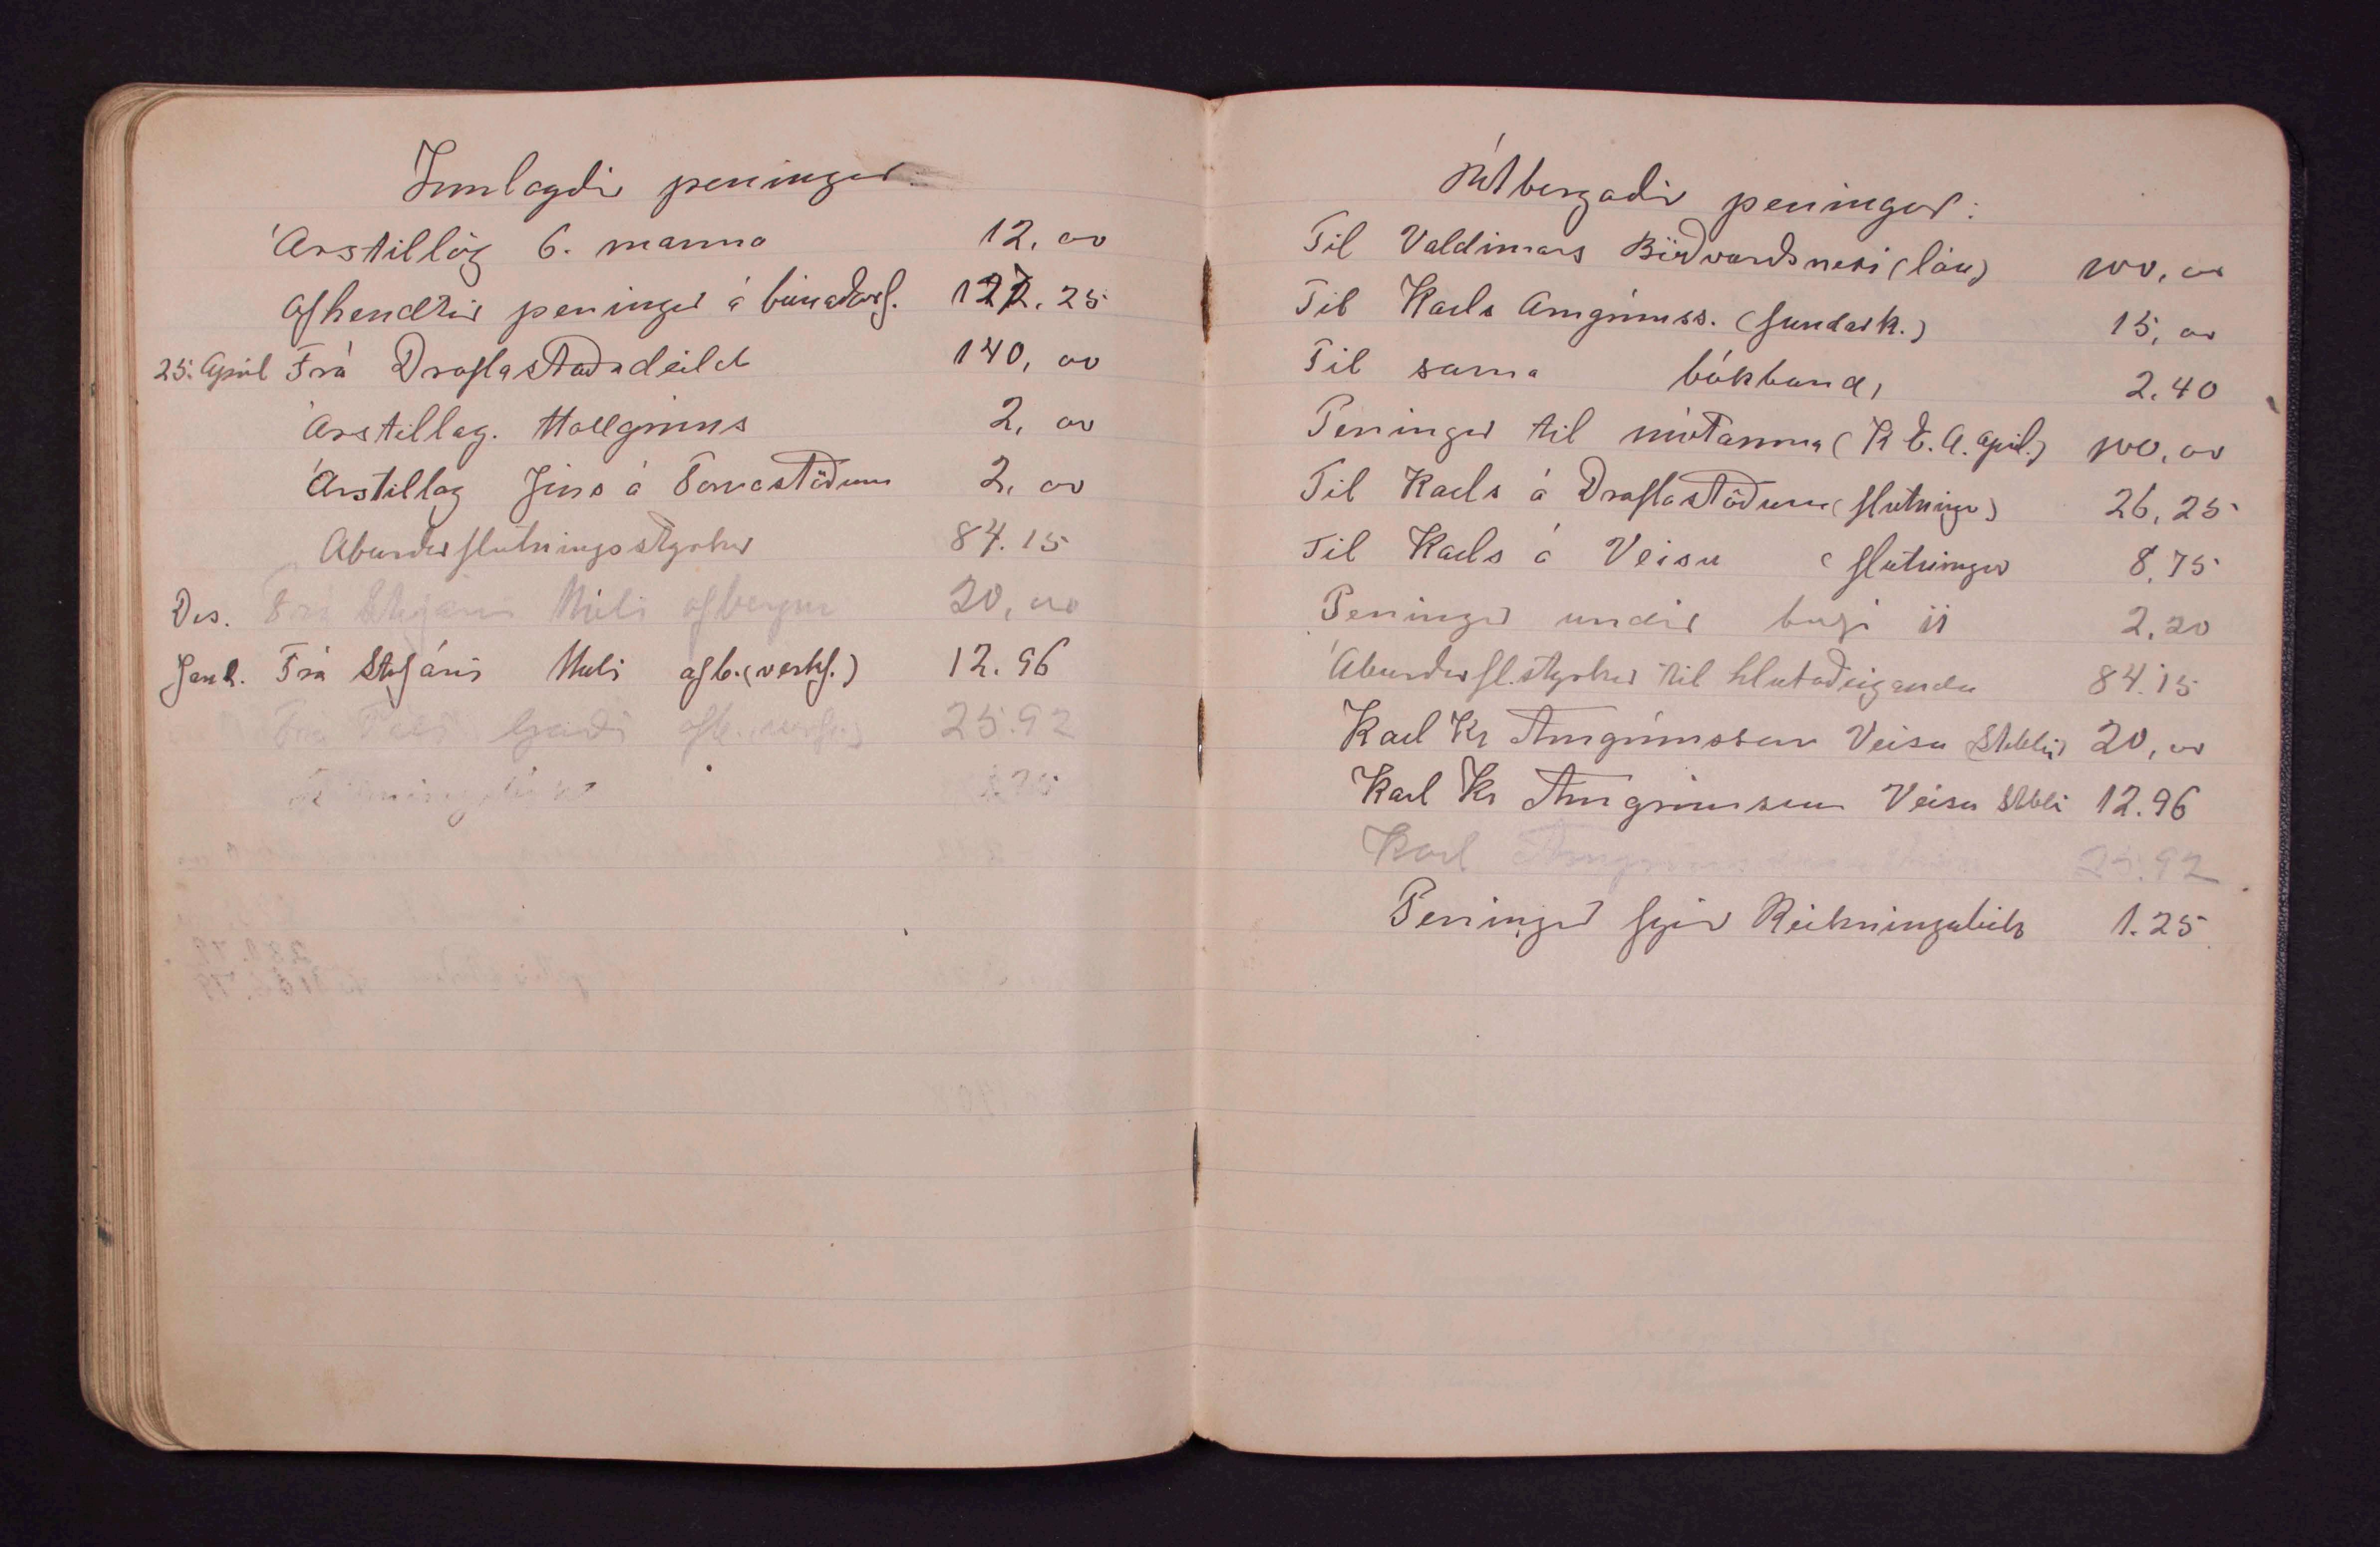 Innlagdir peningar:
Árstillög 6. manna 12, oo
Afhendtir peningar á búnadarf. 122.25
25. Apríl Frá Draflastadadeild 140, oo
Árstillag. Hallgríms 2, oo
Árstillag Jóns á Tornastödum 2, oo
Áburdarflutningsstyrkur 84.15
Des. Frá Stefáni Múli afborgun 20, oo
Jan. Frá Stefáni Múli afb. (verkf.) 12.96
Frá Gardi afb. 25.92
Útborgadir peningar:
Til Valdimars Bödvarsnesi (lán) 100, oo
Til Karls Arngrímss. (fundark.) 15, oo
Til sama bókband, 2.40
Peningar til mótanna (K.E.A. Apríl.) 100, oo
Til Karls á Draflastödum (flutningur) 26,25
Til Karls á Veisu (flutningur 8,75
Peningar undir 2,20
Áburdarfl.styrkur til hlutadeiganda 84.15
Karl Kr Arngrímsson Veisu 20, oo
Karl Kr Arngrímsson Veisu 12.96
Karl Arngrímsson 25.92
Peningar fyrir Reikningabók 1.25